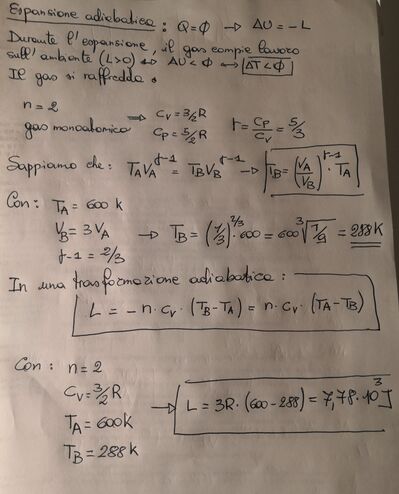 Espansione adiabatica : Q=∅ → ΔU = -L
Durante l'espansione, il gas compie lavoro
sull'ambiente (L>0) ↔ ΔU<∅ ↔ ΔT<∅
Il gas si raffredda.
n = 2
gas monoatomico ⇒ Cv = 3/2 R
Cp = 5/2 R
γ = Cp/Cv = 5/3
Sappiamo che: TA VA^γ-1 = TB VB^γ-1 → TB = (VA/VB)^γ-1 · TA
Con: TA = 600 k
VB = 3 VA → TB = (1/3)^2/3 · 600 = 600 ∛1/9 = 288 K
γ-1 = 2/3
In una trasformazione adiabatica :
L = - n · Cv · (TB - TA) = n · Cv · (TA - TB)
Con : n = 2
Cv = 3/2 R
TA = 600 k → L = 3R · (600 - 288) = 7,78 · 10^3 J
TB = 288 k